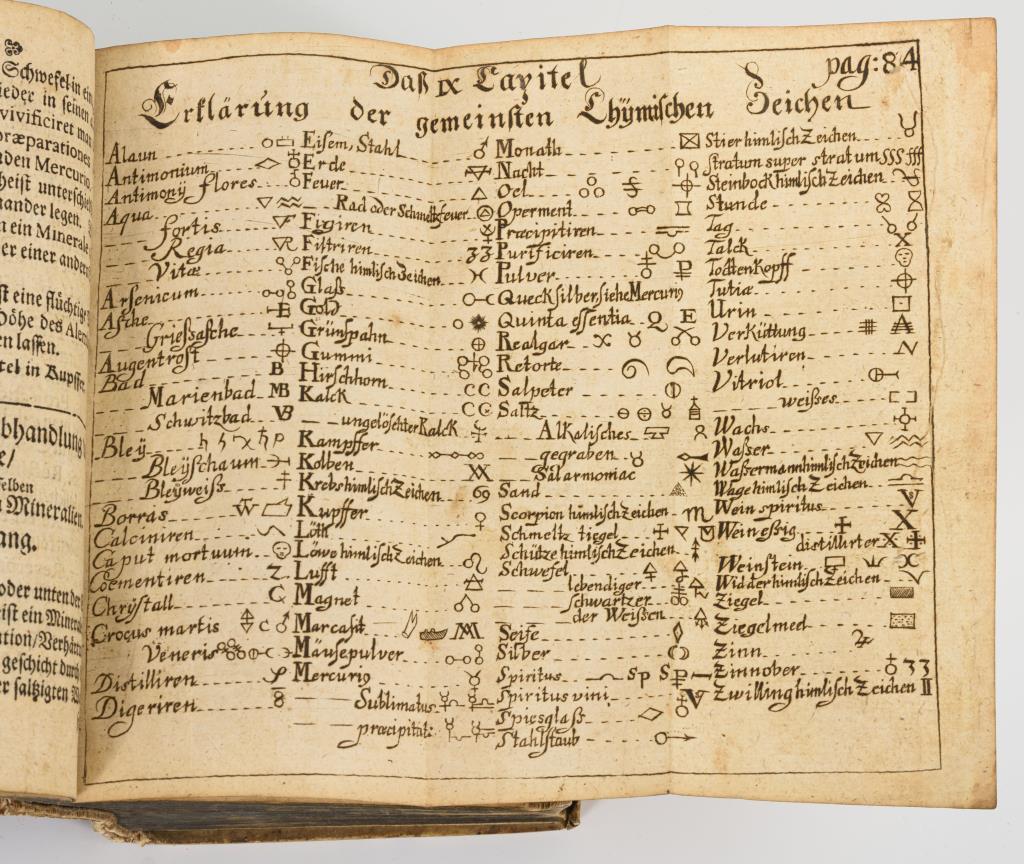 Schwefel in ein
ieder in seinen
vivificiret man
præparationes
den Mercurio
heist unterschie
nander legen.
ein Minerale
er einer ander
st eine flüchtige
Höhe des Ale
en lassen.
tel in Kupffer
bhandlung
e/
selben
Mineralien
ang.
oder unten der
ist ein Mineral
ation/Verhär
geschicht durch
er saltzigten W
pag: 84
Daß IX Capitel
Erklärung der gemeinsten Chÿmischen Zeichen
Alaun
Antimonium
Antimonÿ flores
Aqua
fortis
Regia
Vitæ
Arsenicum
Asche
Griesasche
Augentrost
Bad
Marienbad MB
Schwitzbad
Bleÿ
Bleÿschaum
Bleÿweiß
Borras
Calciniren
Caput mortuum
Coementiren
Chrÿstall
Crocus martis
Veneris
Distilliren
Digeriren
Eisem, Stahl
Erde
Feuer
Rad oder Schmeltzfeuer
Figiren
Filtriren
Fische himlisch Zeichen
Glaß
Gold
Grünspahn
Gummi
Hirschhorn
Kalck
ungelöschter Kalck
Kampffer
Kolben
Krebs himlisch Zeichen
Kupffer
Löth
Löwe himlisch Zeichen
Lufft
Magnet
Marcasit
Mäusepulver
Mercurio
Sublimatus
præcipitat:
Monath
Nacht
Oel
Operment
Præcipitiren
Purificiren
Pulver
Quecksilber, siehe Mercuriÿ
Quinta essentia Q E
Realgar
Retorte
Salpeter
Saltz
Alkalisches
gegraben
Salarmoniac
Sand
Scorpion himlisch Zeichen
Schmeltz tiegel
Schütze himlisch Zeichen
Schwefel
lebendiger
schwartzer
der Weißen
Seife
Silber
Spiritus
Spiritus vini
Spiesglaß
Stahlstaub
Stier himlisch Zeichen
Stratum super stratum SSS fff
Steinbock himlisch Zeichen
Stunde
Tag
Talck
Todtenkopff
Tutiæ
Urin
Verküttung
Verlutiren
Vitriol
weißes
Wachs
Waßer
Waßermann himlisch Zeichen
Wage himlisch Zeichen
Wein spiritus
Weineßig
distillirter
Weinstein
Widder himlisch Zeichen
Ziegel
Ziegelmeel
Zinn
Zinnober
Zwilling himlisch Zeichen